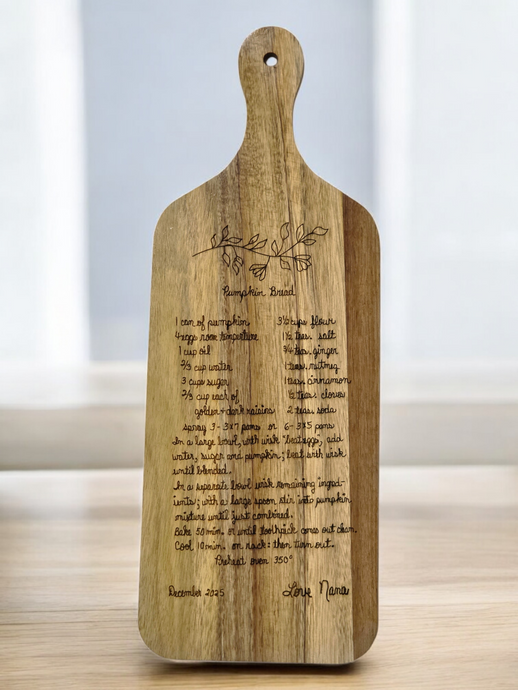 Pumpkin Bread
1 can of pumpkin
4 eggs room temperture
1 cup oil
2/3 cup water
3 cups suger
2/3 cup each of
golden + dark raisins
3 1/2 cups flour
1 1/2 teas. salt
3/4 teas. ginger
1 teas. nutmeg
1 teas. cinnamon
teas. cloves
2 teas. soda
spray 3 - 3x7 pans or 6 - 3x5 pans
In a large bowl, with wisk "beat eggs, add
water, sugar and pumpkin; beat with wisk
until blended.
In a separate bowl wisk remaining ingred-
ients; with a large spoon stir into pumpkin
mixture until just combined.
Bake 50 min. or until toothpick comes out clean.
Cool 10 min. on rack: then turn out.
Preheat oven 350°
December 2025
Love Nana